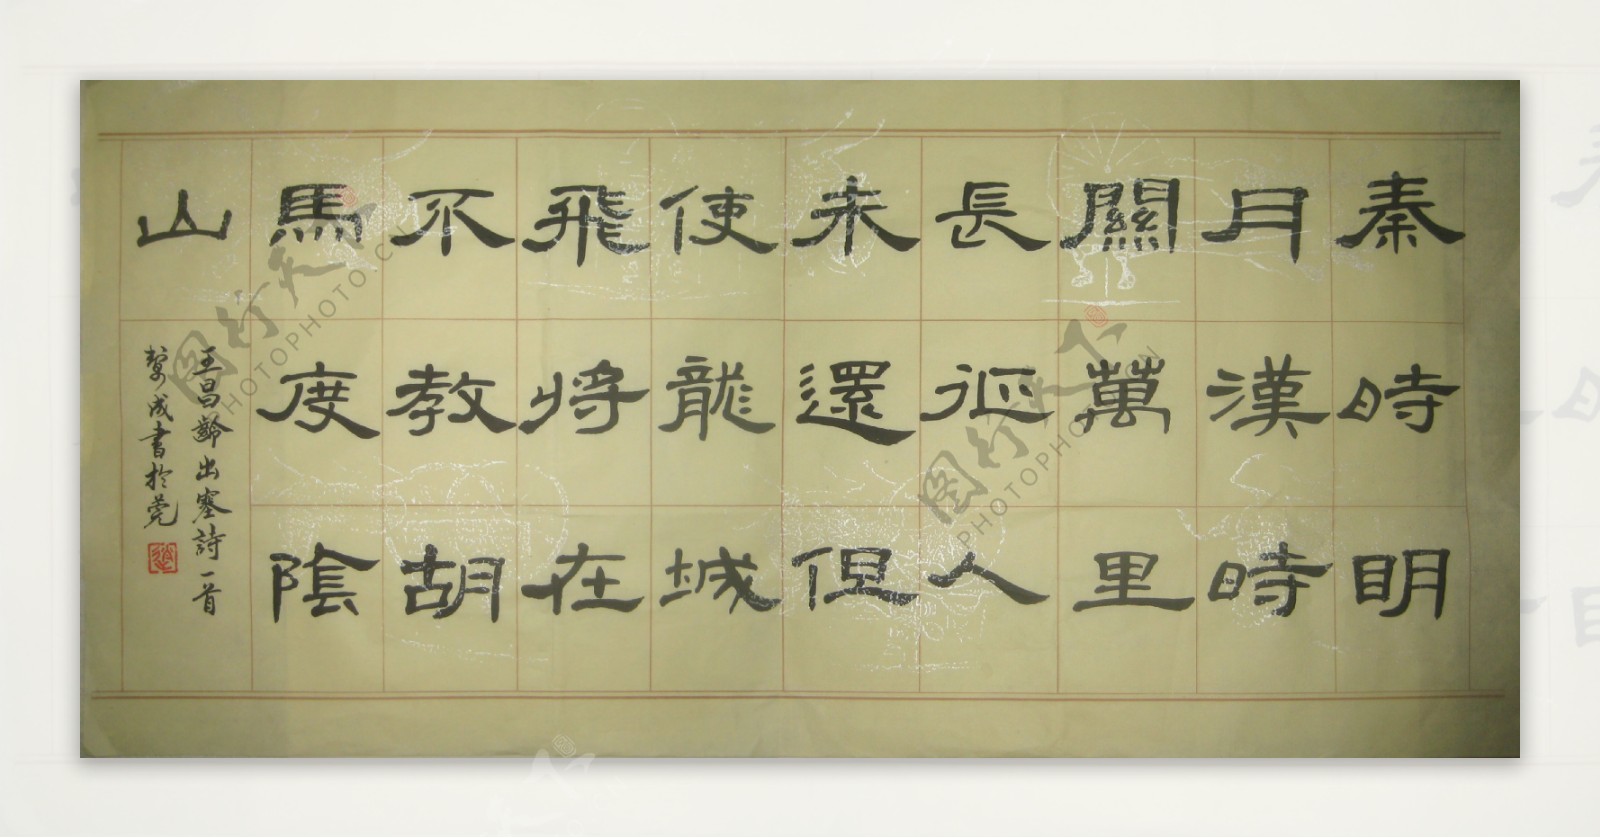 秦時明
月漢時
關萬里
長征人
未還但
使龍城
飛將在
不教胡
馬度陰
山
王昌齡出塞詩一首
成書於莞
PHOTOPHOTO.CN
PHOTOPHOTO.CN